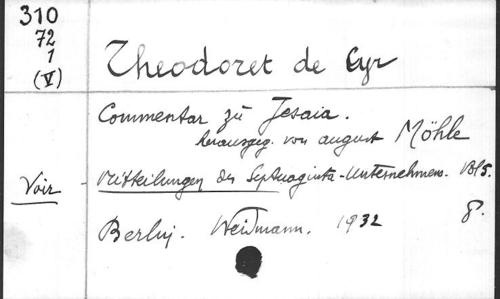 310
72
1
(V)
Theodoret de Cyr
Commentar zu Jesaia.
herausgeg. von august Möhle
Voir - Mitteilungen des Septuaginta-Unternehmens. Bd 5.
Berlin. Weidmann. 1932 8°.